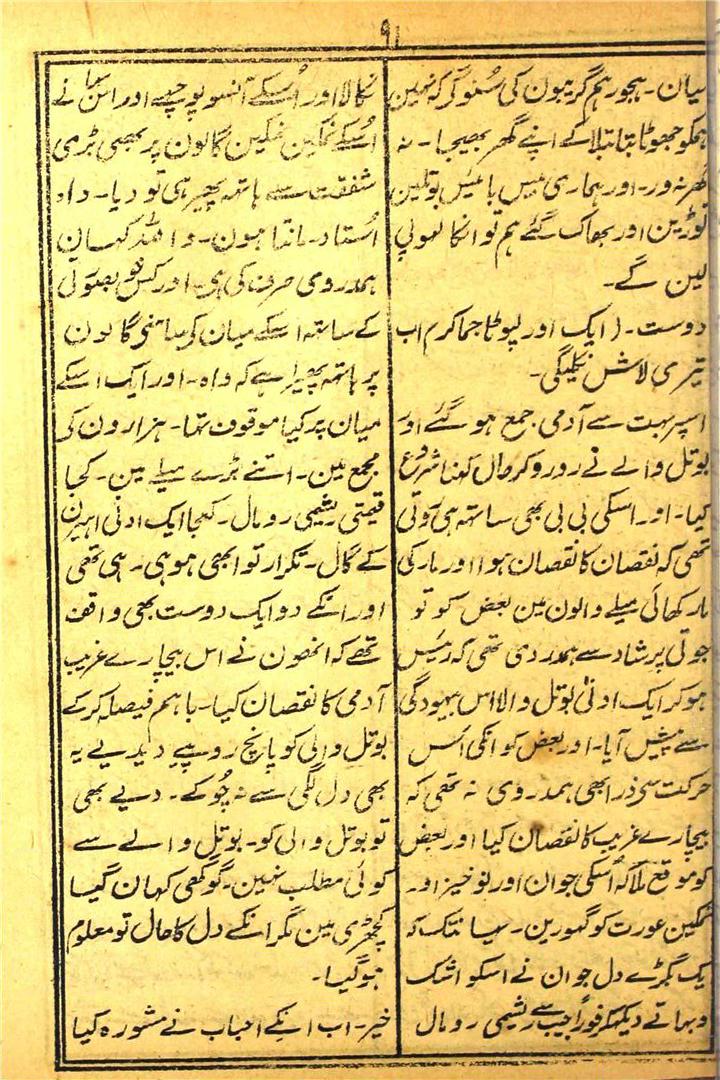 ۹۱
میان۔ ہجور ہم گریبون کی سُنو گر کہ نہین
ہمکو جھوٹا بتا بتلا کے اپنے گھر بھیجا۔ نہ
گھر نہ ور۔ اور ہماری بیس بائیس بوتلین
توڑین اور بھاگ گئے ہم تو انکا لہو پی
لین گے۔
دوست۔ (ایک اور لپوٹا جما کر) اب
تیری لاش نکلیگی۔
اسپر بہت سے آدمی جمع ہو گئے اور
بوتل والے نے رو رو کر حال کہنا شروع
کیا۔ اور اسکی بی بی بھی ساتھ ہی روتی
تھی کہ نقصان کا نقصان ہوا اور مار کی
مار کھائی میلے والون مین بعض کو تو
جوتی پرشاد سے ہمدردی تھی کہ رئیس
ہو کر ایک ادنیٰ بوتل والا اس بیہودگی
سے پیش آیا۔ اور بعض کو انکی اس
حرکت سی ذرا بھی ہمدردی نہ تھی کہ
بیچارے غریب کا نقصان کیا اور بعض
کو موقع ملا کہ اُسکی جوان اور نوخیز اور
نمکین عورت کو گھورین۔ یہانتک کہ
ایک بگڑے دل جوان نے اسکو اشک
بہاتے دیکھکر فوراً جیب سے ریشمی رومال
نکالا اور اُسکے آنسو پونچھے اور اس نے
اُسکے نمکین نمکین گالون پر بھی بڑی
شفقت سے ہاتھ پھیر ہی تو دیا۔ واہ
اُستاد۔ مانتا ہون۔ واللہ کہان
ہمدردی صرف کی ہی۔ اور کس خوبصورتی
کے ساتھ اسکے میان کی سامنی گالون
پر ہاتھ پھیرا ہے کہ واہ۔ اور ایک اسکے
میان پر کیا موقوف تھا۔ ہزارون کی
مجمع مین۔ اتنے بڑے میلے مین۔ کجا
قیمتی ریشمی رومال۔ کجا ایک ادنی اہیرن
کے گال۔ تکرار تو ابھی ہو ہی۔ رہی تھی
اور انکے دو ایک دوست بھی واقف
تھے کہ انھون نے اس بیچارے غریب
آدمی کا نقصان کیا۔ باہم فیصلہ کر کے
بوتل والی کو پانچ روپیے دیدیے یہ
بھی دل لگی سے نہ چُوکے۔ دیے بھی
تو بوتل والی کو۔ بوتل والے سے
کوئی مطلب نہین۔ گو گھی کہان گیا
کھچڑی مین مگر انکے دل کا حال تو معلوم
ہو گیا۔
خیر۔ اب انکے احباب نے مشورہ کیا